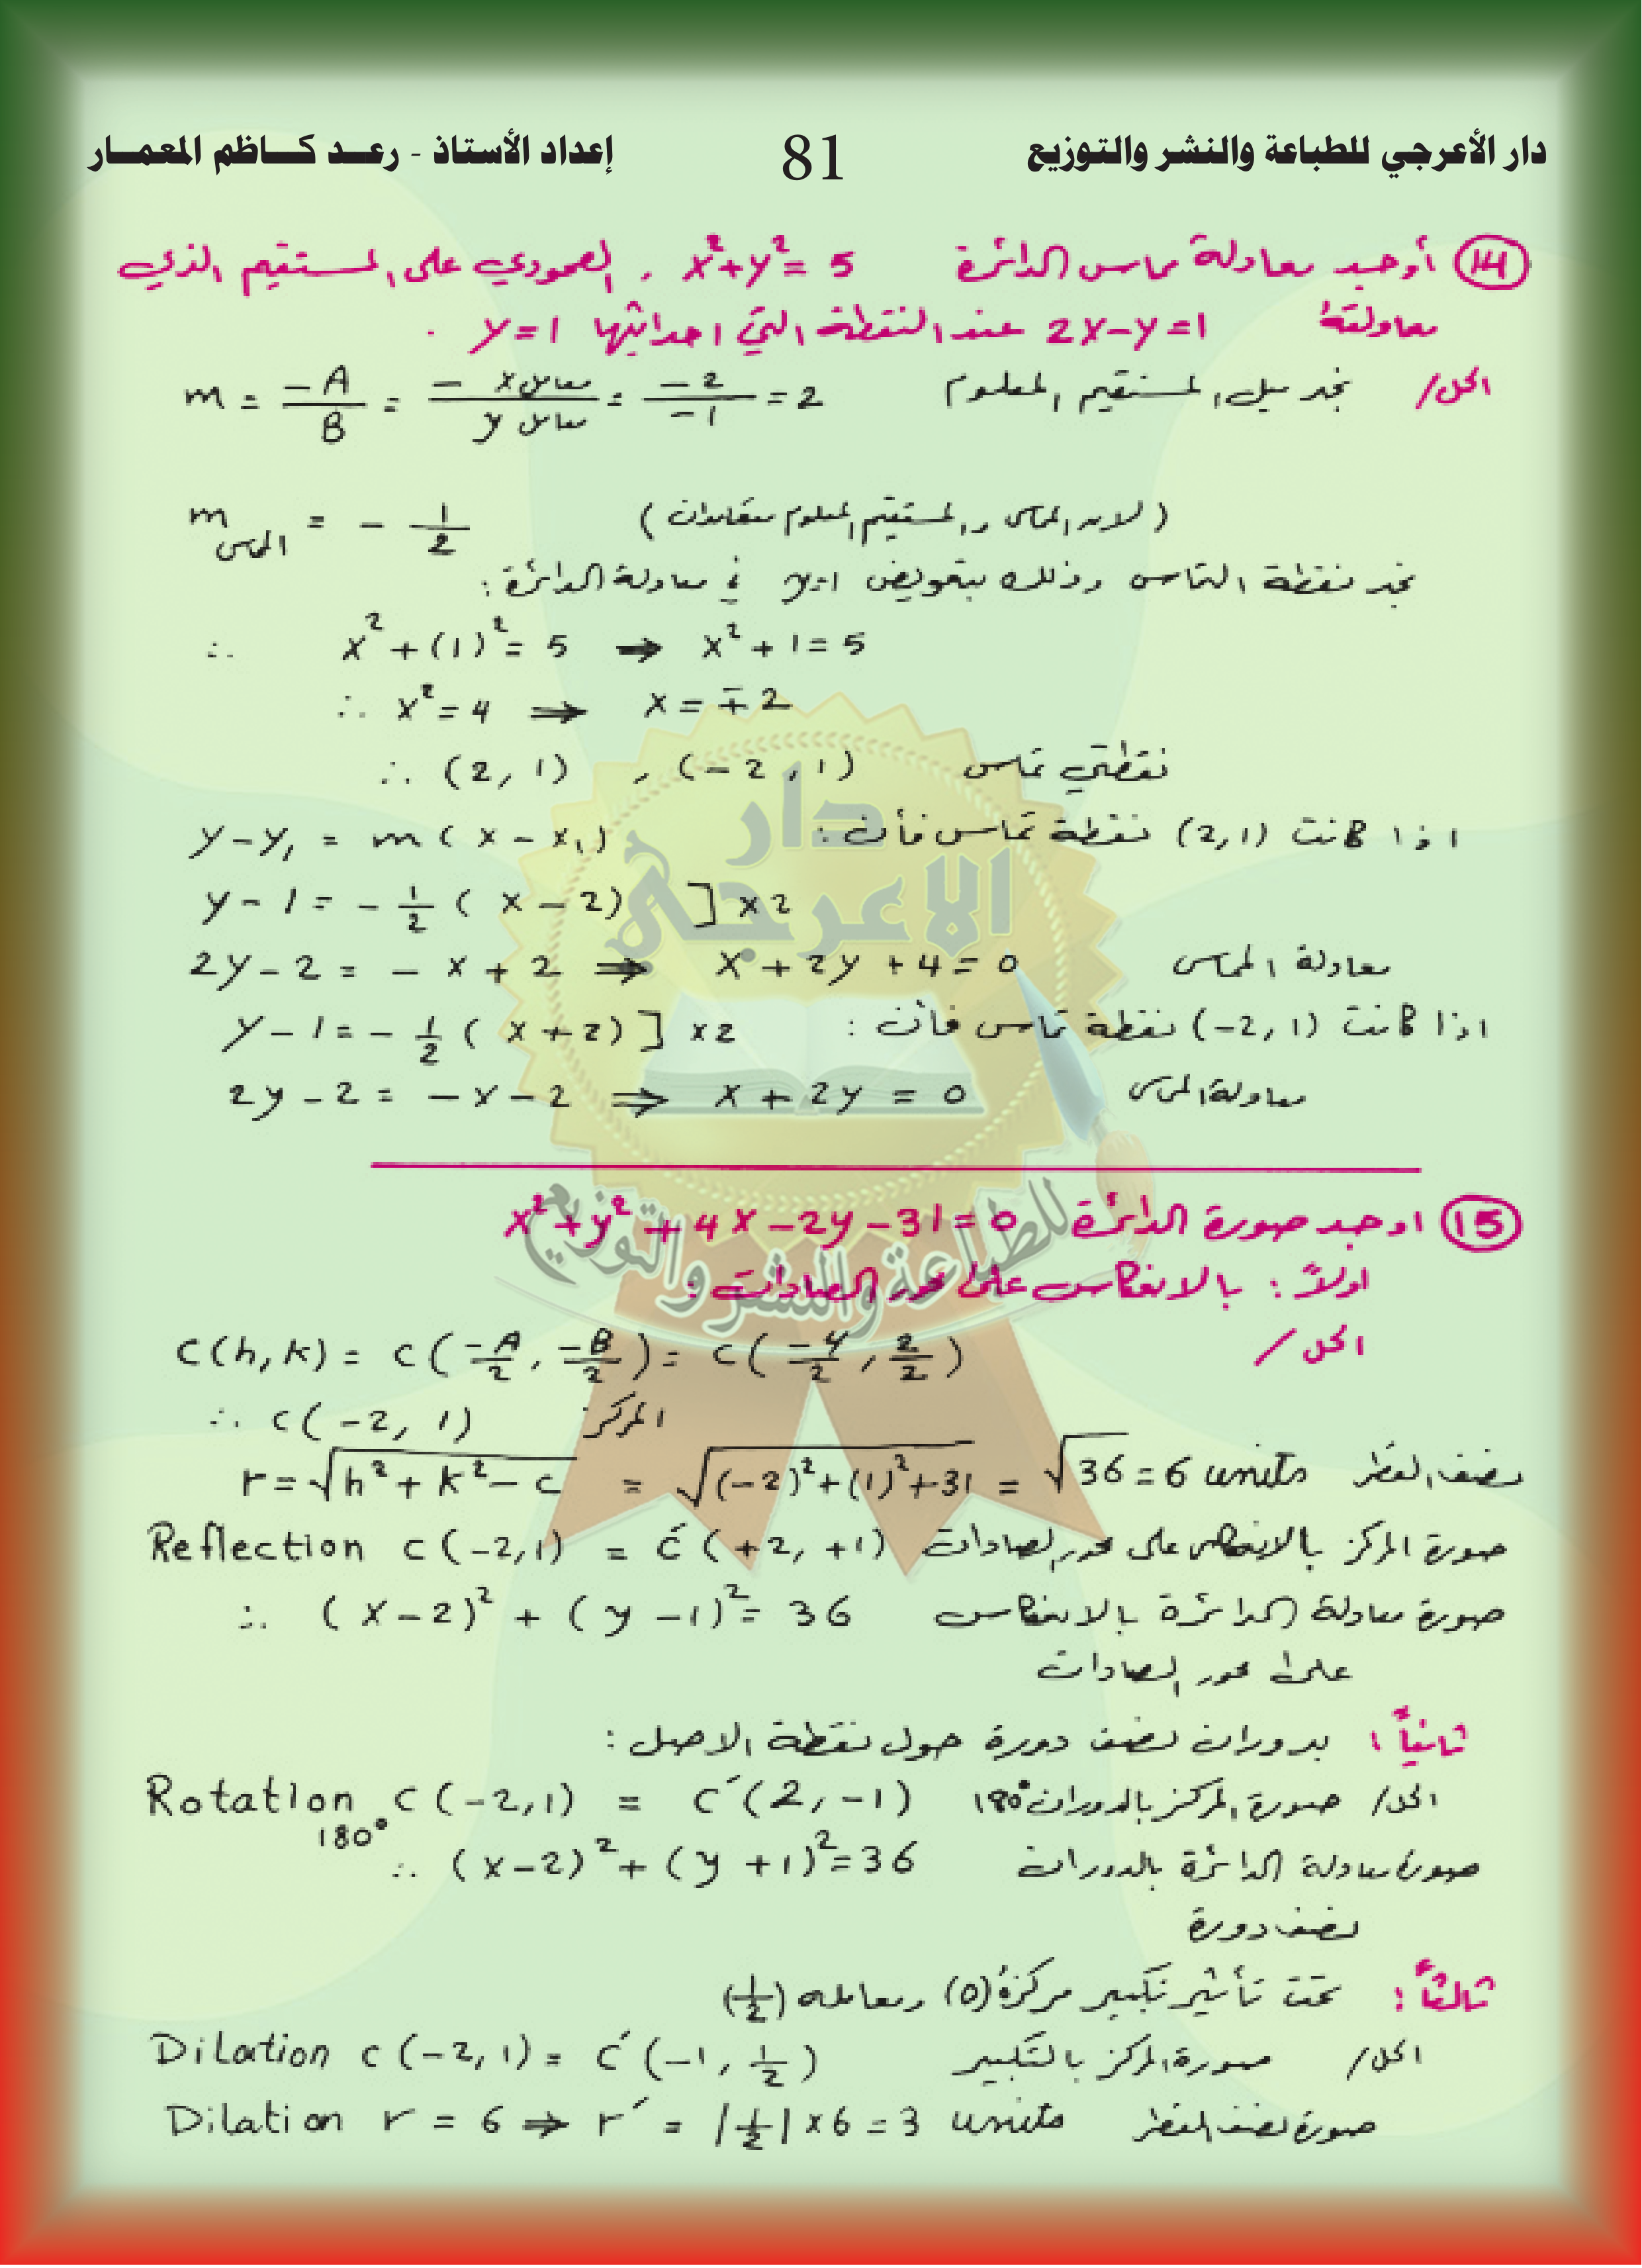 دار الأعرجي للطباعة والنشر والتوزيع 81 إعداد الأستاذ - رعد كاظم المعمار
14 أوجد معادلة مماس الدائرة x²+y²=5 ، العمودي على المستقيم الذي
معادلته 2x-y=1 عند النقطة التي احداثيها y=1 .
الحل/ نجد ميل المستقيم المعلوم m = -A/B = - معامل x / معامل y = -2/-1 = 2
m المماس = - 1/2 (لان المماس والمستقيم المعلوم متعامدان)
نجد نقطة التماس وذلك بتعويض y=1 في معادلة الدائرة :
∴ x²+(1)²=5 ⇒ x²+1=5
∴ x²=4 ⇒ x=∓2
∴ (2,1) , (-2,1) نقطتي تماس
اذا كانت (2,1) نقطة تماس فأن : y-y₁ = m(x-x₁)
y-1 = -1/2 (x-2) ]×2
2y-2 = -x+2 ⇒ x+2y+4=0 معادلة المماس
اذا كانت (-2,1) نقطة تماس فأن : y-1=-1/2 (x+2) ]×2
2y-2 = -x-2 ⇒ x+2y=0 معادلة المماس
15 اوجد صورة الدائرة x²+y²+4x-2y-31=0
اولاً : بالانعكاس على محور الصادات :
الحل/
C(h,k) = C(-A/2, -B/2) = C(-4/2, 2/2)
∴ C(-2,1) المركز
r=√h²+k²-c = √(-2)²+(1)²+31 = √36 = 6 units نصف القطر
Reflection C(-2,1) = C´(+2,+1) صورة المركز بالانعكاس على محور الصادات
∴ (x-2)² + (y-1)² = 36 صورة معادلة الدائرة بالانعكاس
على محور الصادات
ثانياً : بدوران نصف دورة حول نقطة الاصل :
الحل/ صورة المركز بالدوران 180° Rotation 180° C(-2,1) = C´(2,-1)
∴ (x-2)²+(y+1)²=36 صورة معادلة الدائرة بالدوران
نصف دورة
ثالثاً : تحت تأثير تكبير مركزه (0) ومعامله (1/2)
الحل/ صورة المركز بالتكبير Dilation C(-2,1) = C´(-1, 1/2)
Dilation r = 6 ⇒ r´ = |1/2|×6 = 3 units صورة نصف القطر
دار
الاعرجي
للطباعة والنشر والتوزيع